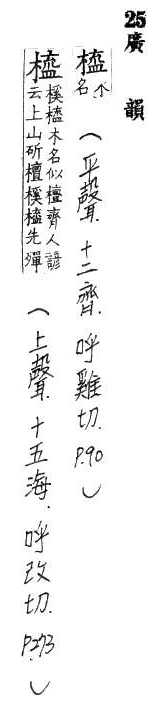 25廣韻
橀 木名 (平聲.十二齊.呼雞切.P.90)
橀 橀橀木名似檀齊人諺云上山斫檀榽橀先殫 (上聲.十五海.呼改切.P.273)